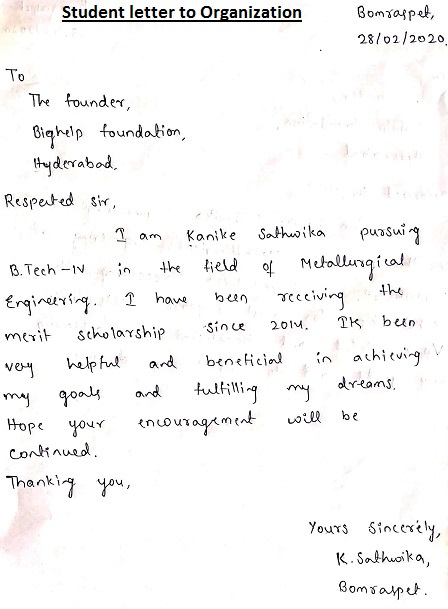 Student letter to Organization
Bomraspet,
28/02/2020.
To
The founder,
Bighelp foundation,
Hyderabad.
Respected Sir,
I am Kanike Sathwika pursuing
B.Tech-IV in the field of Metallurgical
Engineering. I have been receiving the
merit scholarship since 2014. It's been
very helpful and beneficial in achieving
my goals and fulfilling my dreams.
Hope your encouragement will be
continued.
Thanking you,
Yours Sincerely,
K. Sathwika,
Bomraspet.